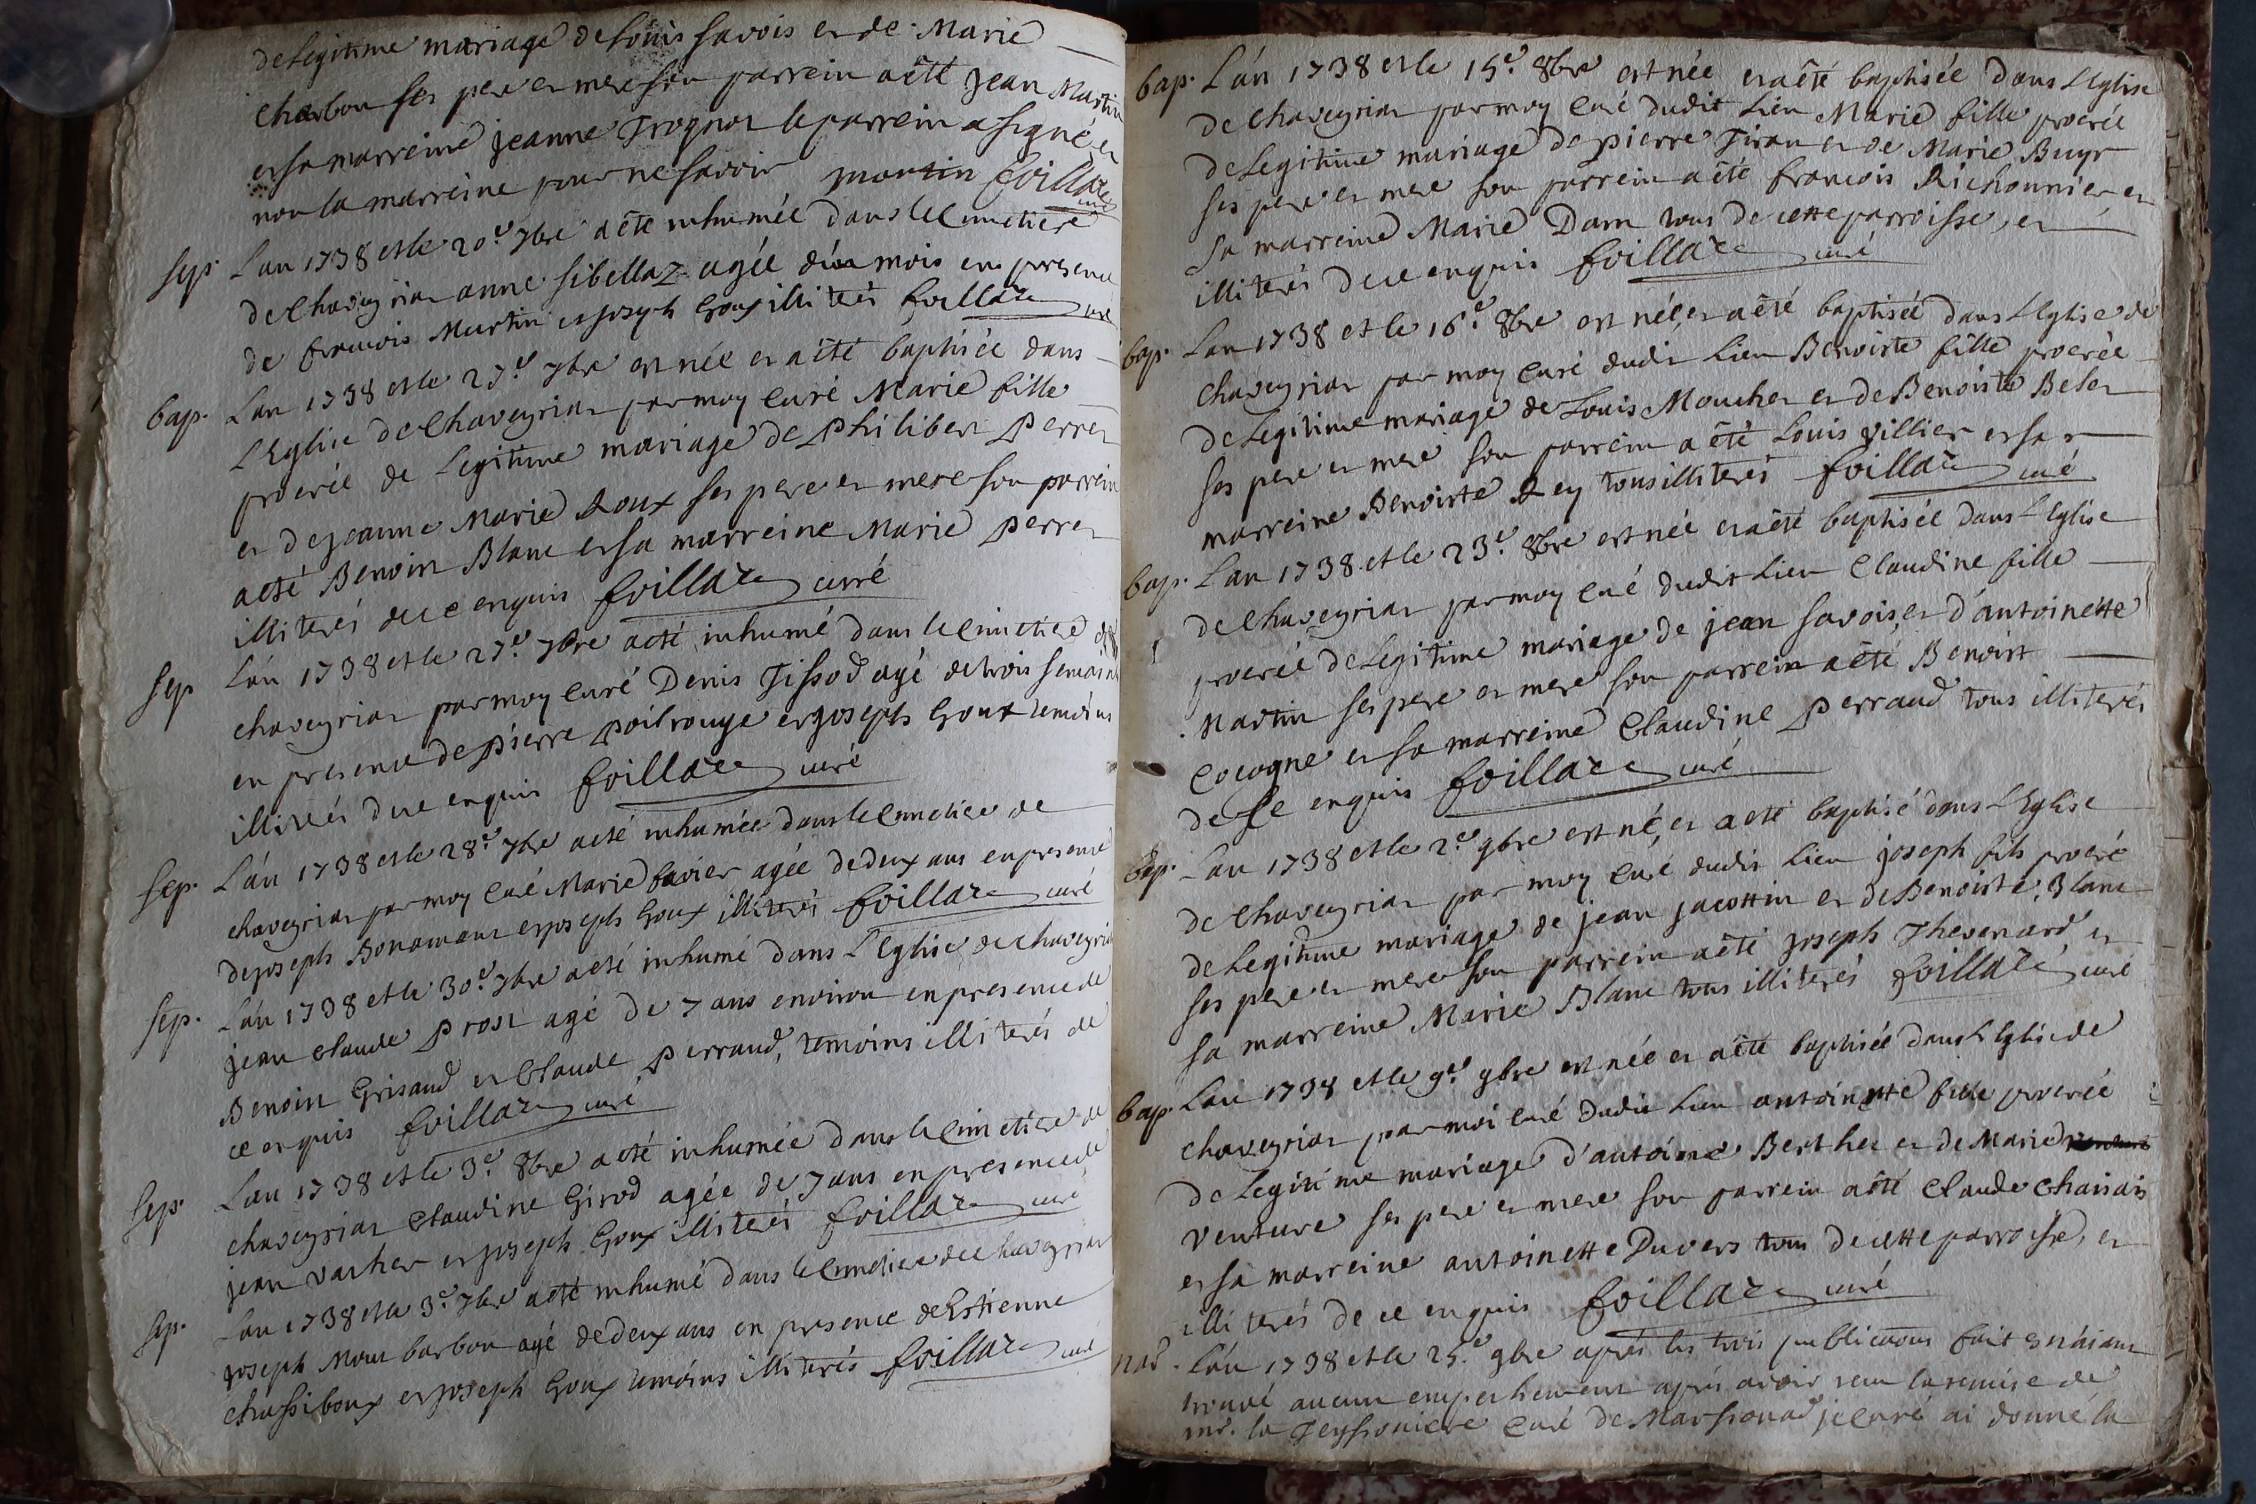 de Legitime mariage de Louis Savois et de Marie
charbon ses pere et mere son parrein a êté jean Martin
et sa marreine jeanne Trognot le parrein a signé et
non la marreine pour ne savoir martin foillaze curé
sep. L'an 1738 et le 20.e 7bre a êté inhumée dans le cimetiere
de Chaveyriat anne sibellaz agée d'un mois en presence
de francois Martin et joseph Goux illiterés foillaze curé
bap. L'an 1738 et le 27.e 7bre est née et a êté baptisée dans
L'Eglise de Chaveyriat par moy Curé Marie fille
procréé de Legitime mariage de philibert perret
et de jeanne Marie Roux ses pere et mere son parrein
a eté Benoit Blanc et sa marreine Marie perret
illiterés de ce enquis foillaze curé
sep L'an 1738 et le 27.e 7bre a eté inhumé dans le cimetiere de
chaveyriat par moy curé Denis Tissod agé de trois semaines
en presence de pierre poilrouge et joseph Goux temoins
illiterés de ce enquis foillaze curé
sep. L'an 1738 et le 28.e 7bre a eté inhumée dans le cimetiere de
chaveyriat par moy curé Marie bavier agée de deux ans en presence
de joseph Bonamour et joseph Goux illiterés foillaze curé
sep. L'an 1738 et le 30.e 7bre a eté inhumé dans L'Eglise de chaveyriat
jean claude prost agé de 7 ans environ en presence de
Benoit Grisaud et Claude perraud, temoins illiterés de
ce enquis foillaze curé
sep. L'an 1738 et le 3.e 8bre a eté inhumée dans le cimetiere de
chaveyriat Claudine Girod agée de 7 ans en presence de
jean vacher et joseph Goux illiterés foillaze curé
sep. L'an 1738 et le 3.e 7bre a eté inhumé dans le cimetiere de chaveyriat
joseph Mont barbon agé de deux ans en presence de Estienne
chassiboux et joseph Goux temoins illiterés foillaze curé
bap. L'an 1738 et le 15.e 8bre est née et a êté baptisée dans L'Eglise
de Chaveyriat par moy Curé dudit Lieu Marie fille procréé
de Legitime mariage de pierre Tiran et de Marie Buyr
ses pere et mere son parrein a êté francois Richonnier et
sa marreine Marie Dam tous de cette parroisse, et
illiterés de ce enquis foillaze curé
bap. L'an 1738 et le 16.e 8bre est née, et a êté baptisée dans L'Eglise de
chaveyriat par moy curé dudit Lieu Benoiste fille procréé
de Legitime mariage de Louis Moucher et de Benoiste Belet
ses pere et mere son parrein a êté Louis villier et sa
marreine Benoiste Rey tous illiterés foillaze curé
bap. L'an 1738 et le 23.e 8bre est née et a êté baptisée dans L'Eglise
de Chaveyriat par moy Curé dudit Lieu Claudine fille
procréé de Legitime mariage de jean savois, et d'antoinette
Martin ses pere et mere son parrein a êté Benoist
Cocogne et sa marreine Claudine perraud tous illiterés
de ce enquis foillaze curé
bap. L'an 1738 et le 2.e 9bre est né, et a eté baptisé dans L'Eglise
de Chaveyriat par moy Curé dudit Lieu joseph fils procréé
de Legitime mariage de jean jacottin et de Benoiste Blanc
ses pere et mere son parrein a eté joseph Thevenard et
sa marreine Marie Blanc tous illiterés foillaze curé
bap. L'an 1738 et le 9.e 9bre est née et a êté baptisée dans L'Eglise de
chaveyriat par moi curé dudit Lieu antoinette fille procréé
de Legitime mariage d'antoine Berthet et de Marie
venture ses pere et mere son parrein a êté Claude Chanais
et sa marreine antoinette Duvers tous de cette parroisse, et
illiterés de ce enquis foillaze curé
L'an 1738 et le 25.e 9bre aprés les trois publications fait et n'aiant
trouvé aucun empechement aprés avoir veu la remise de
mr. la Teyssoniere Curé de Marssonad je curé ai donné la